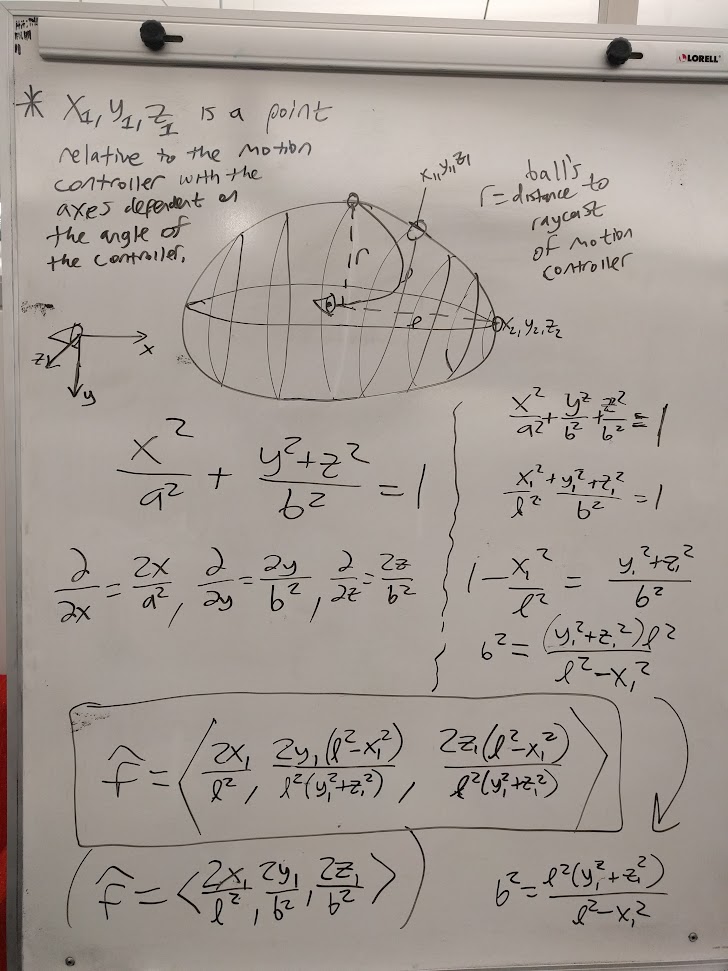 LORELL
* X1, Y1, Z1 is a point
relative to the motion
controller with the
axes dependent on
the angle of
the controller.
x1,y1,z1
r = ball's
distance to
raycast
of motion
controller
r
l
x2, y2, z2
x
z
y
x²/a² + (y²+z²)/b² = 1
∂/∂x = 2x/a², ∂/∂y = 2y/b², ∂/∂z = 2z/b²
x²/a² + y²/b² + z²/b² = 1
x1²/l² + (y1²+z1²)/b² = 1
1 - x1²/l² = (y1²+z1²)/b²
b² = (y1²+z1²)l²/(l²-x1²)
f̂ = ⟨2x1/l², 2y1(l²-x1²)/(l²(y1²+z1²)), 2z1(l²-x1²)/(l²(y1²+z1²))⟩
(f̂ = ⟨2x1/l², 2y1/b², 2z1/b²⟩)
b² = l²(y1²+z1²)/(l²-x1²)